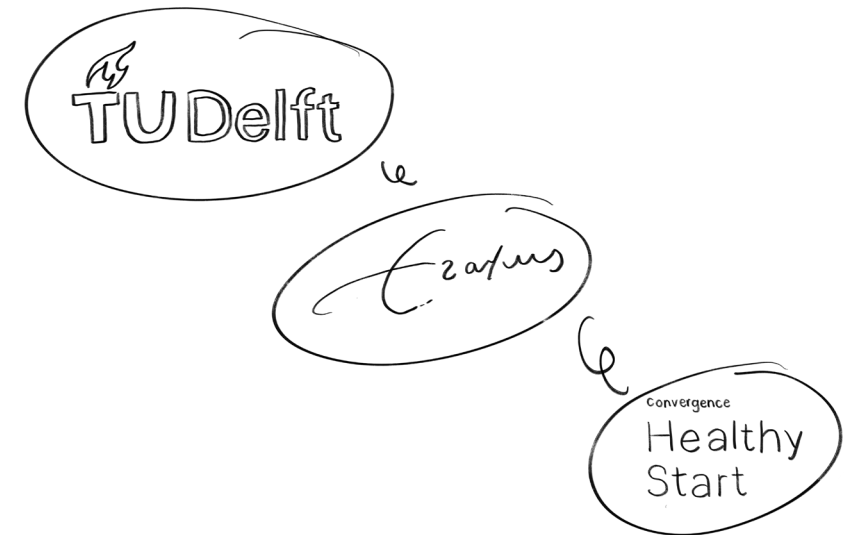 TU Delft
Erasmus
convergence
Healthy
Start